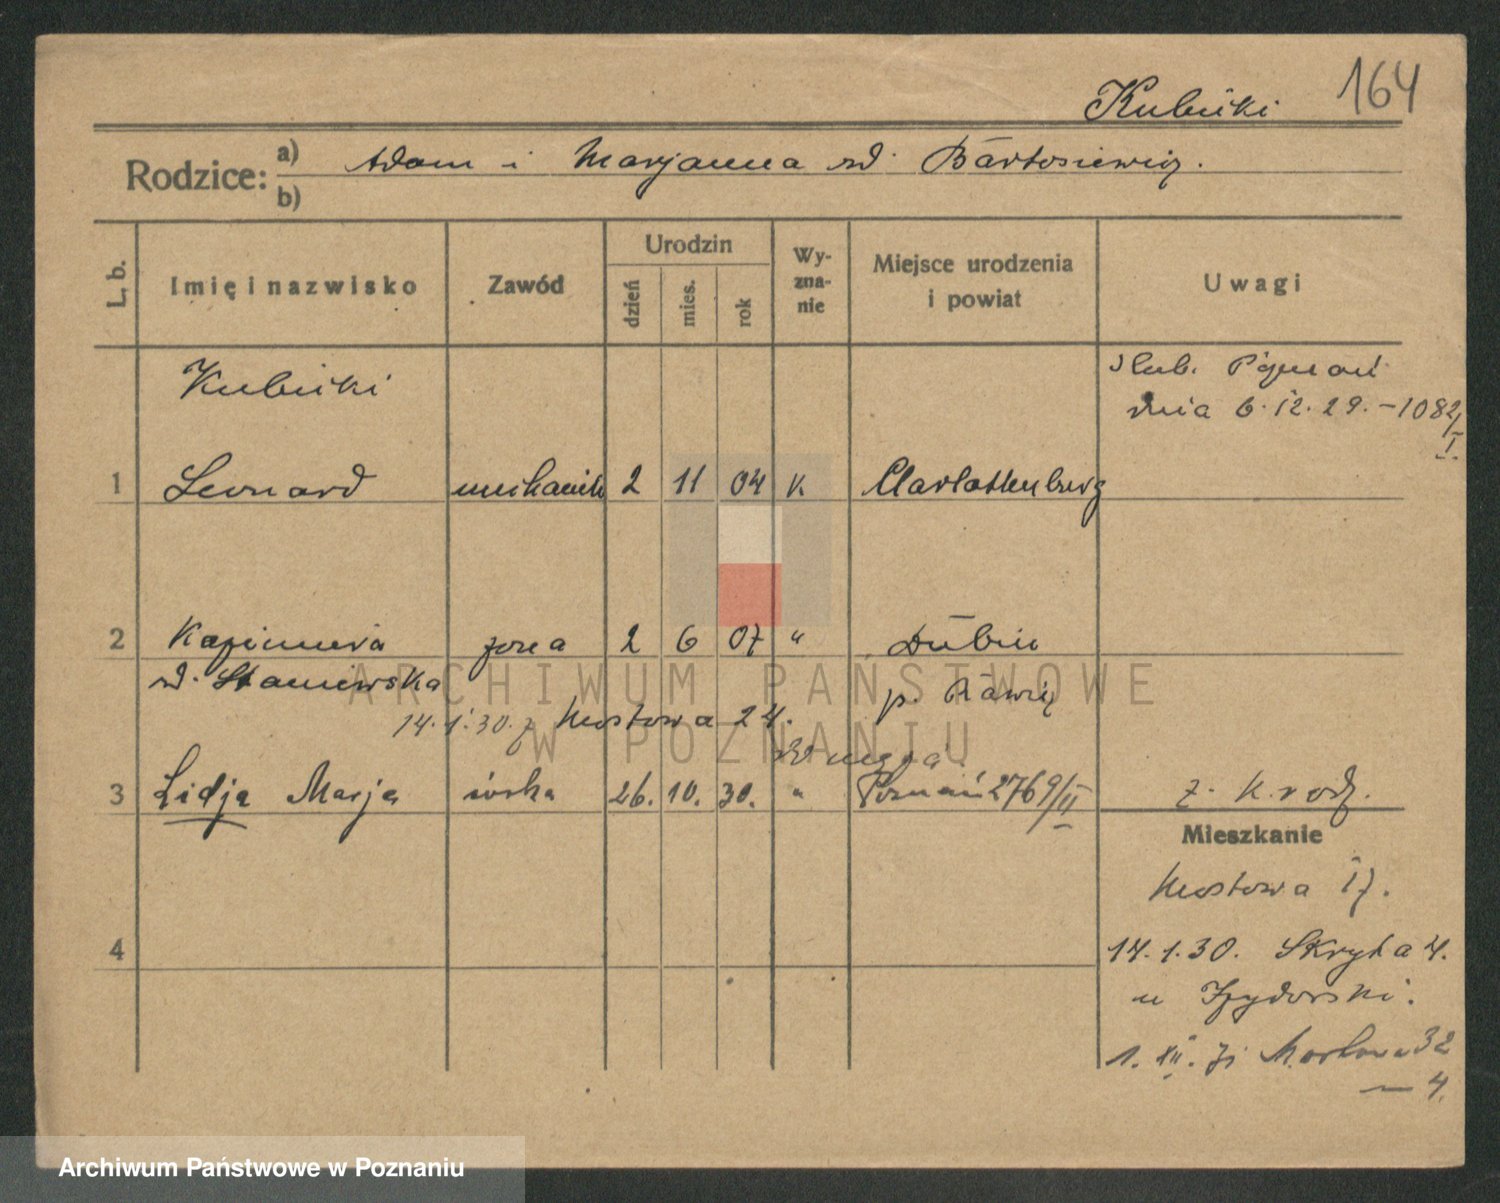 164
Kubicki
Rodzice: a) Adam i Marjanna zd. Bartosiewicz.
b)
L. b. Imię i nazwisko Zawód Urodzin dzień mies. rok Wyzna-nie Miejsce urodzenia i powiat Uwagi
Kubicki ślub. Poznań
dnia 6.12.29. – 1082/I.
1 Leonard mechanik 2 11 04 k. Charlottenburg
2 Kazimiera żona 2 6 07 " Dubin
zd. Staniewska p. Rawicz
14.1.30. z Mostowa 24.
3 Lidja Marja córka 26. 10. 30. " Poznań 2769/II z. k. rodz.
Mieszkanie
Mostowa 17.
4
14.1.30. Skryta 4.
u Izydorski.
1. XII. 31 Mostowa 32
— 4.
ARCHIWUM PAŃSTWOWE
W POZNANIU
Archiwum Państwowe w Poznaniu